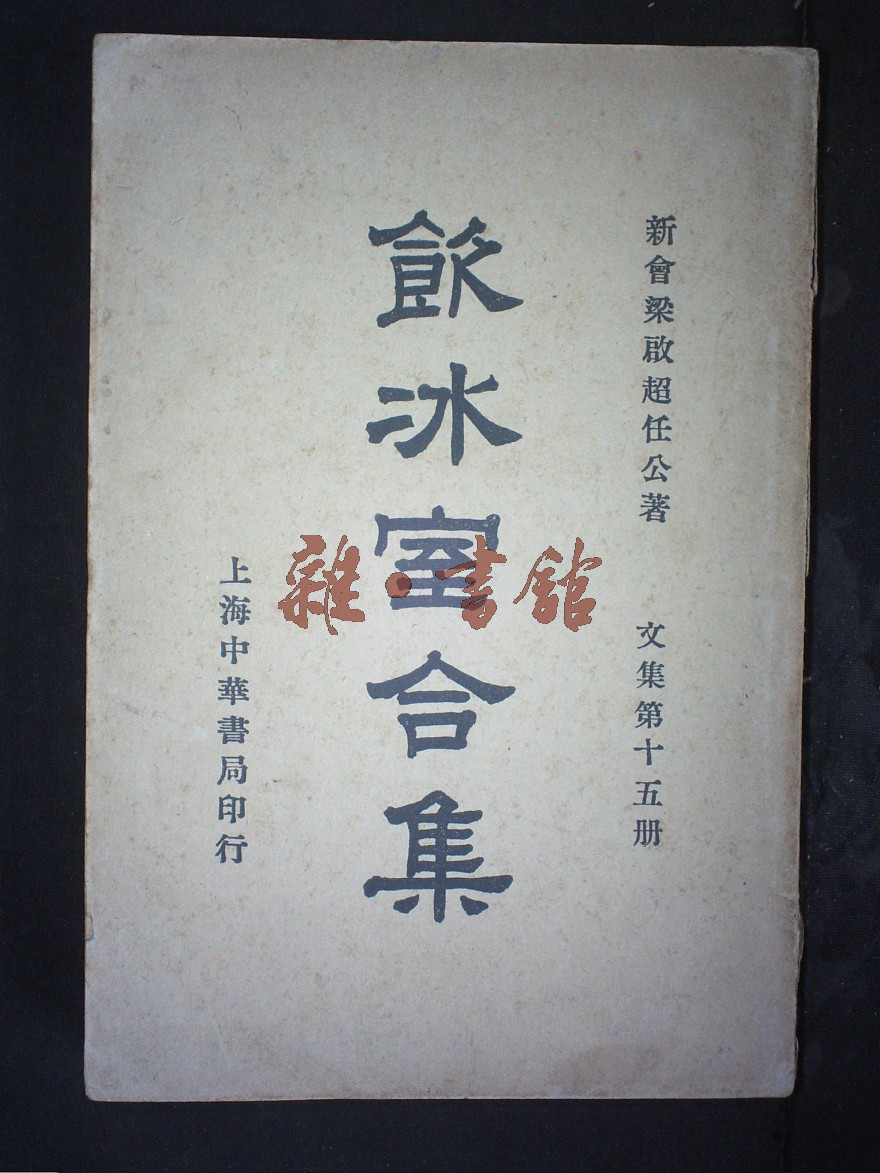 新會梁啟超任公著 文集第十五册
飲冰室合集
上海中華書局印行
雜·書館